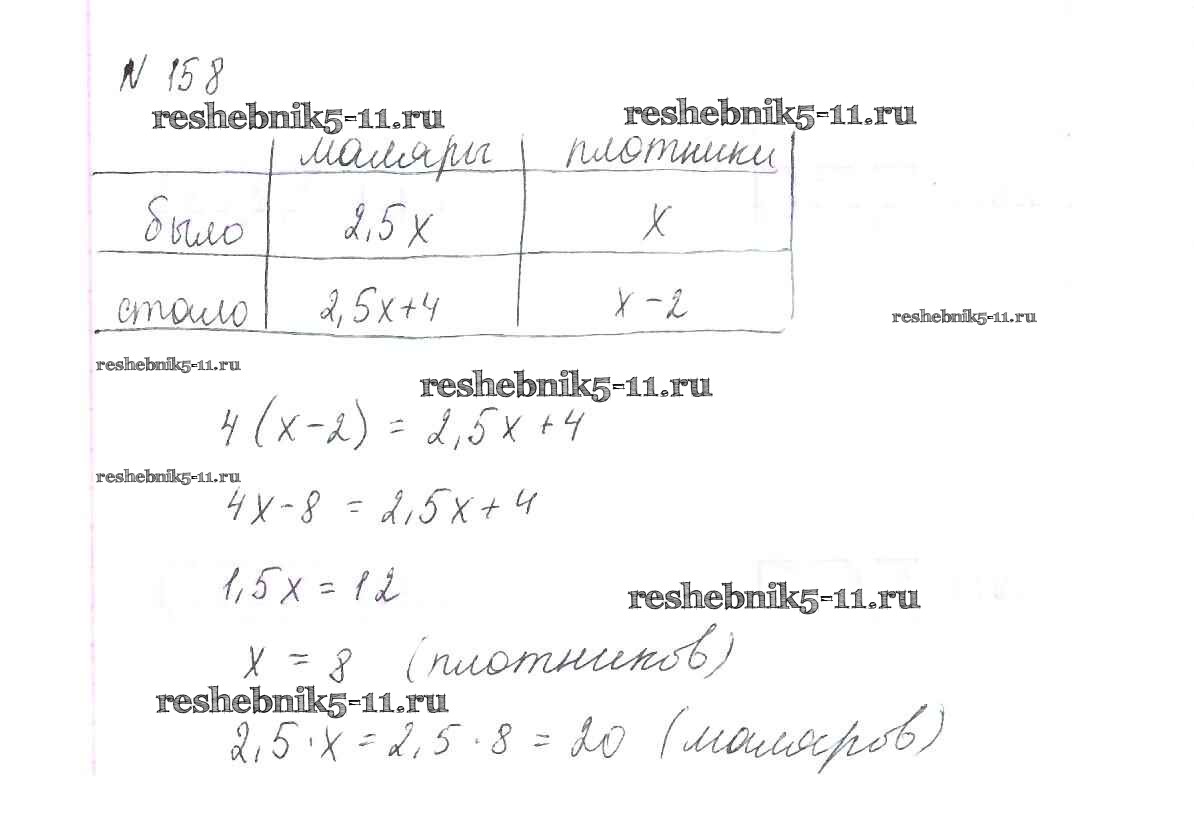 N 158
reshebnik5-11.ru reshebnik5-11.ru
маляры плотники
было 2,5x x
стало 2,5x+4 x-2
reshebnik5-11.ru
reshebnik5-11.ru
reshebnik5-11.ru
4(x-2) = 2,5x+4
reshebnik5-11.ru
4x-8 = 2,5x+4
1,5x = 12
reshebnik5-11.ru
x = 8 (плотников)
reshebnik5-11.ru
2,5·x = 2,5·8 = 20 (маляров)